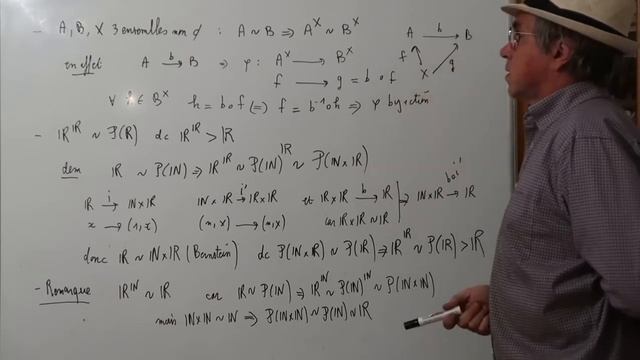 - A, B, X 3 ensembles non ∅ : A ~ B ⇒ A^X ~ B^X
en effet A →^b B ⇒ φ : A^X → B^X
f → g = b o f
A →^b B
f X g
∀ h ∈ B^X h = b o f ⇔ f = b^-1 o h ⇒ φ bijection
- ℝ^ℝ ~ P(ℝ) dc ℝ^ℝ > ℝ
dem ℝ ~ P(ℕ) ⇒ ℝ^ℝ ~ P(ℕ)^ℝ ~ P(ℕ×ℝ)
ℝ →^i ℕ×ℝ ℕ×ℝ →^i' ℝ×ℝ et ℝ×ℝ →^b ℝ ⇒ ℕ×ℝ →^boi' ℝ
x → (1, x) (n, x) → (n, x) car ℝ×ℝ ~ ℝ
donc ℝ ~ ℕ×ℝ (Bernstein) dc P(ℕ×ℝ) ~ P(ℝ) ⇒ ℝ^ℝ ~ P(ℝ) > ℝ
- Remarque ℝ^ℕ ~ ℝ car ℝ ~ P(ℕ) ⇒ ℝ^ℕ ~ P(ℕ)^ℕ ~ P(ℕ×ℕ)
mais ℕ×ℕ ~ ℕ ⇒ P(ℕ×ℕ) ~ P(ℕ) ~ ℝ